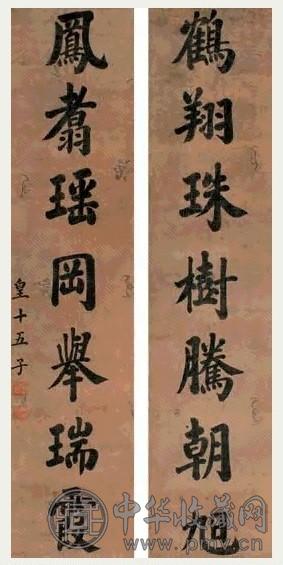 鶴翔珠樹騰朝旭
鳳翥瑶岡舉瑞霞
皇十五子
中华收藏网